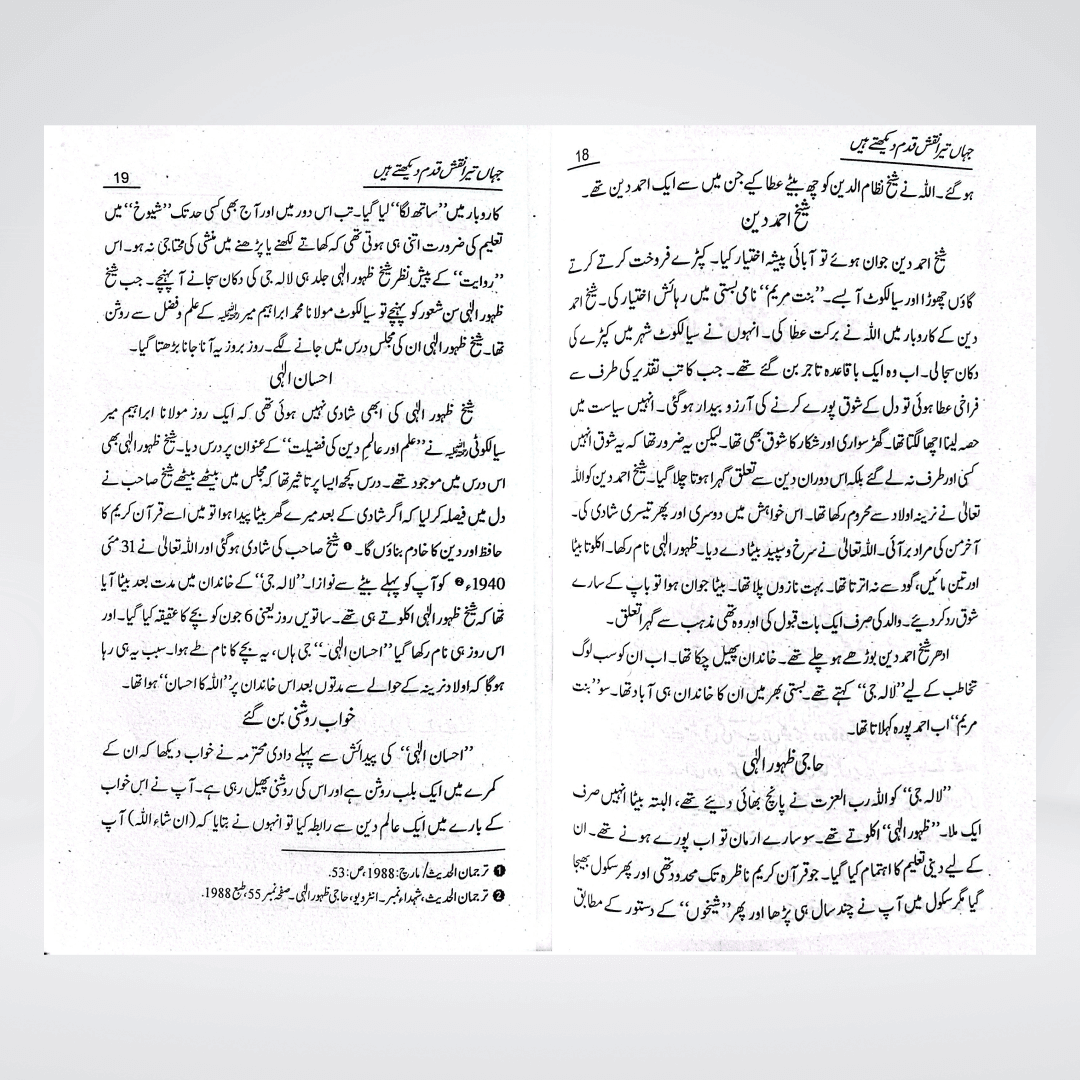 جہاں تیرا نقش قدم دیکھتے ہیں
18
ہوگئے۔ اللہ نے شیخ نظام الدین کو چھ بیٹے عطا کیے جن میں سے ایک احمد دین تھے۔
شیخ احمد دین
شیخ احمد دین جوان ہوئے تو آبائی پیشہ اختیار کیا۔ کپڑے فروخت کرتے کرتے
گاؤں چھوڑا اور سیالکوٹ آبسے۔ ’’بنت مریم‘‘ نامی بستی میں رہائش اختیار کی۔ شیخ احمد
دین کے کاروبار میں اللہ نے برکت عطا کی۔ انہوں نے سیالکوٹ شہر میں کپڑے کی
دکان سجالی۔ اب وہ ایک باقاعدہ تاجر بن گئے تھے۔ جب کاتب تقدیر کی طرف سے
فراخی عطا ہوئی تو دل کے شوق پورے کرنے کی آرزو بیدار ہوگئی۔ انہیں سیاست میں
حصہ لینا اچھا لگتا تھا۔ گھڑ سواری اور شکار کا شوق بھی تھا۔ لیکن یہ ضرور تھا کہ یہ شوق انہیں
کسی اور طرف نہ لے گئے بلکہ اس دوران دین سے تعلق گہرا ہوتا چلا گیا۔ شیخ احمد دین کو اللہ
تعالیٰ نے نرینہ اولاد سے محروم رکھا تھا۔ اس خواہش میں دوسری اور پھر تیسری شادی کی۔
آخر من کی مراد بر آئی۔ اللہ تعالیٰ نے سرخ وسپید بیٹا دے دیا۔ ظہور الٰہی نام رکھا۔ اکلوتا بیٹا
اور تین مائیں، گود سے نہ اترتا تھا۔ بہت نازوں پلا تھا۔ بیٹا جوان ہوا تو باپ کے سارے
شوق رد کر دیئے۔ والد کی صرف ایک بات قبول کی اور وہ تھی مذہب سے گہرا تعلق۔
ادھر شیخ احمد دین بوڑھے ہو چلے تھے۔ خاندان پھیل چکا تھا۔ اب ان کو سب لوگ
تخاطب کے لیے ’’لالہ جی‘‘ کہتے تھے۔ بستی بھر میں ان کا خاندان ہی آباد تھا۔ سو ’’بنت
مریم‘‘ اب احمد پورہ کہلاتا تھا۔
حاجی ظہور الٰہی
’’لالہ جی‘‘ کو اللہ رب العزت نے پانچ بھائی دیئے تھے، البتہ بیٹا انہیں صرف
ایک ملا۔ ’’ظہور الٰہی‘‘ اکلوتے تھے۔ سو سارے ارمان تو اب پورے ہونے تھے۔ ان
کے لیے دینی تعلیم کا اہتمام کیا گیا۔ جو قرآن کریم ناظرہ تک محدود تھی اور پھر سکول بھیجا
گیا مگر سکول میں آپ نے چند سال ہی پڑھا اور پھر ’’شیخوں‘‘ کے دستور کے مطابق
جہاں تیرا نقش قدم دیکھتے ہیں
19
کاروبار میں ’’ساتھ لگا‘‘ لیا گیا۔ تب اس دور میں اور آج بھی کسی حد تک ’’شیوخ‘‘ میں
تعلیم کی ضرورت اتنی ہی ہوتی تھی کہ کھاتے لکھنے یا پڑھنے میں منشی کی محتاجی نہ ہو۔ اس
’’روایت‘‘ کے پیش نظر شیخ ظہور الٰہی جلد ہی لالہ جی کی دکان سجانے آ پہنچے۔ جب شیخ
ظہور الٰہی سن شعور کو پہنچے تو سیالکوٹ مولانا محمد ابراہیم میر رحمہ اللہ کے علم وفضل سے روشن
تھا۔ شیخ ظہور الٰہی ان کی مجلس درس میں جانے لگے۔ روز بروز یہ آنا جانا بڑھتا گیا۔
احسان الٰہی
شیخ ظہور الٰہی کی ابھی شادی نہیں ہوئی تھی کہ ایک روز مولانا ابراہیم میر
سیالکوٹی رحمہ اللہ نے ’’علم اور عالم دین کی فضیلت‘‘ کے عنوان پر درس دیا۔ شیخ ظہور الٰہی بھی
اس درس میں موجود تھے۔ درس کچھ ایسا پر تاثیر تھا کہ مجلس میں بیٹھے بیٹھے شیخ صاحب نے
دل میں فیصلہ کر لیا کہ اگر شادی کے بعد میرے گھر بیٹا پیدا ہوا تو میں اسے قرآن کریم کا
حافظ اور دین کا خادم بناؤں گا۔ ❶ شیخ صاحب کی شادی ہوگئی اور اللہ تعالیٰ نے 31 مئی
1940ء ❷ کو آپ کو پہلے بیٹے سے نوازا۔ ’’لالہ جی‘‘ کے خاندان میں مدت بعد بیٹا آیا
تھا کہ شیخ ظہور الٰہی اکلوتے ہی تھے۔ ساتویں روز یعنی 6 جون کو بچے کا عقیقہ کیا گیا۔ اور
اس روز ہی نام رکھا گیا ’’احسان الٰہی۔‘‘ جی ہاں، یہ بچے کا نام طے ہوا۔ سبب یہ ہی رہا
ہوگا کہ اولاد نرینہ کے حوالے سے مدتوں بعد اس خاندان پر ’’اللہ کا احسان‘‘ ہوا تھا۔
خواب روشنی بن گئے
’’احسان الٰہی‘‘ کی پیدائش سے پہلے دادی محترمہ نے خواب دیکھا کہ ان کے
کمرے میں ایک بلب روشن ہے اور اس کی روشنی پھیل رہی ہے۔ آپ نے اس خواب
کے بارے میں ایک عالم دین سے رابطہ کیا تو انہوں نے بتایا کہ (ان شاء اللہ) آپ
❶ ترجمان الحدیث/ مارچ: 1988، ص: 53.
❷ ترجمان الحدیث، شہداء نمبر۔ انٹرویو، حاجی ظہور الٰہی۔ صفحہ نمبر 55، طبع 1988.